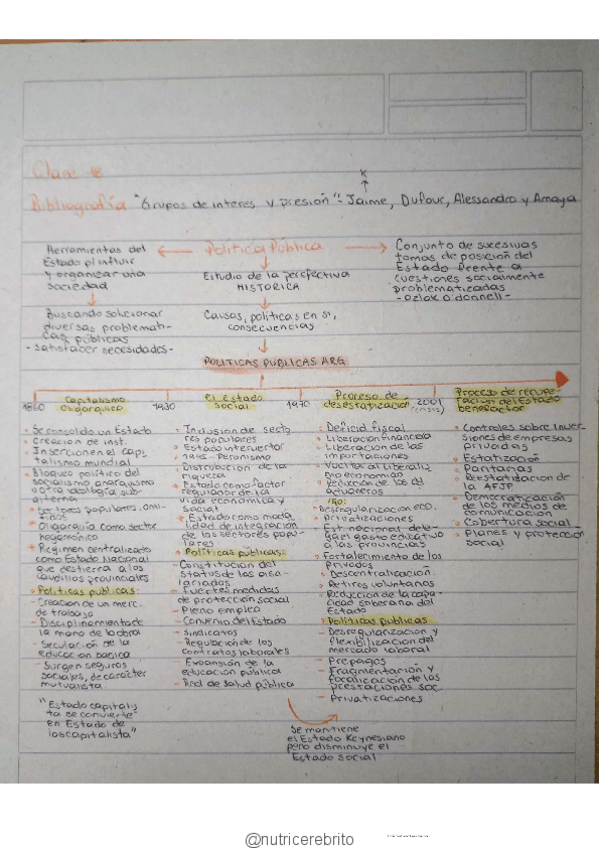 Clase
Bibliografía "Grupos de interes y presion" - Jaime, Dufour, Alessandro y Amaya
Política Pública
Herramientas del
Estado p/ influir
y organizar una
sociedad
Buscando solucionar
diversas problemati-
cas públicas
- satisfacer necesidades -
Estudio de la perspectiva
HISTORICA
Causas, politicas en si,
consecuencias
Conjunto de sucesivas
tomas de posición del
Estado frente a
cuestiones socialmente
problematizadas
- Ozlak O'donnell -
POLITICAS PUBLICAS ARG
1880
Capitalismo
Oligarquico
1930
El estado
social
1970
Proceso de
desestatización
2001
(crisis)
Proceso de recupe-
racion del Estado
benefactor
Se consolida un Estado
Creacion de inst.
Insercion en el capi-
talismo mundial
Bloqueo politico del
socialismo, anarquismo
u otra ideología sub-
alterna
Sectores populares
Oligarquía como sector
hegemónico
Regimen centralizado
como Estado Nacional
que destierra a los
caudillos provinciales
Politicas publicas:
- Creacion de un merc.
de trabajo
- Disciplinamiento de
la mano de la obra
- Seculacion de la
educacion basica
- Surgen seguros
sociales, de carácter
mutualista
"Estado capitalis
ta se convierte
en Estado de
los capitalista"
Inclusion de secto
res populares
Estado interventor
1945 - Peronismo
Distribucion de la
riqueza
Estado como factor
regulador de la
vida economica y
social
Estado como moda
lidad de integracion
de los sectores popu-
lares
Politicas publicas:
- Constitucion del
status de los asa-
lariados
- Fuertes medidas
de protección social
- Pleno empleo
- Convenio del Estado
- Sindicatos
- Regulacion de los
contratos laborales
- Expansión de la
educación publica
- Red de salud pública
Deficid fiscal
Liberacion financiera
Liberacion de las
importaciones
Vuelta al liberalis
mo economico
reduccion de los
aduaneros
Desregularizacion eco.
Privatizaciones
Est. nacional dele-
ga el gasto educativo
a las provincias
Fortalecimiento de los
Privados
Descentralización
Retiros voluntarios
Reduccion de la capa-
cidad soberana del
Estado
Politicas publicas
- Desregularizacion y
flexibilizacion del
mercado laboral
- Prepagos
- Fragmentación y
focalización de las
prestaciones soc.
- Privatizaciones
Se mantiene
el Estado Keynesiano
pero disminuye el
Estado social
Controles sobre inver-
siones de empresas
privadas
Estatización
Paritarias
Reestatizacion de
la AFJP
Democratización
de los medios de
comunicacion
Cobertura social
Planes y protección
social
@nutricerebrito